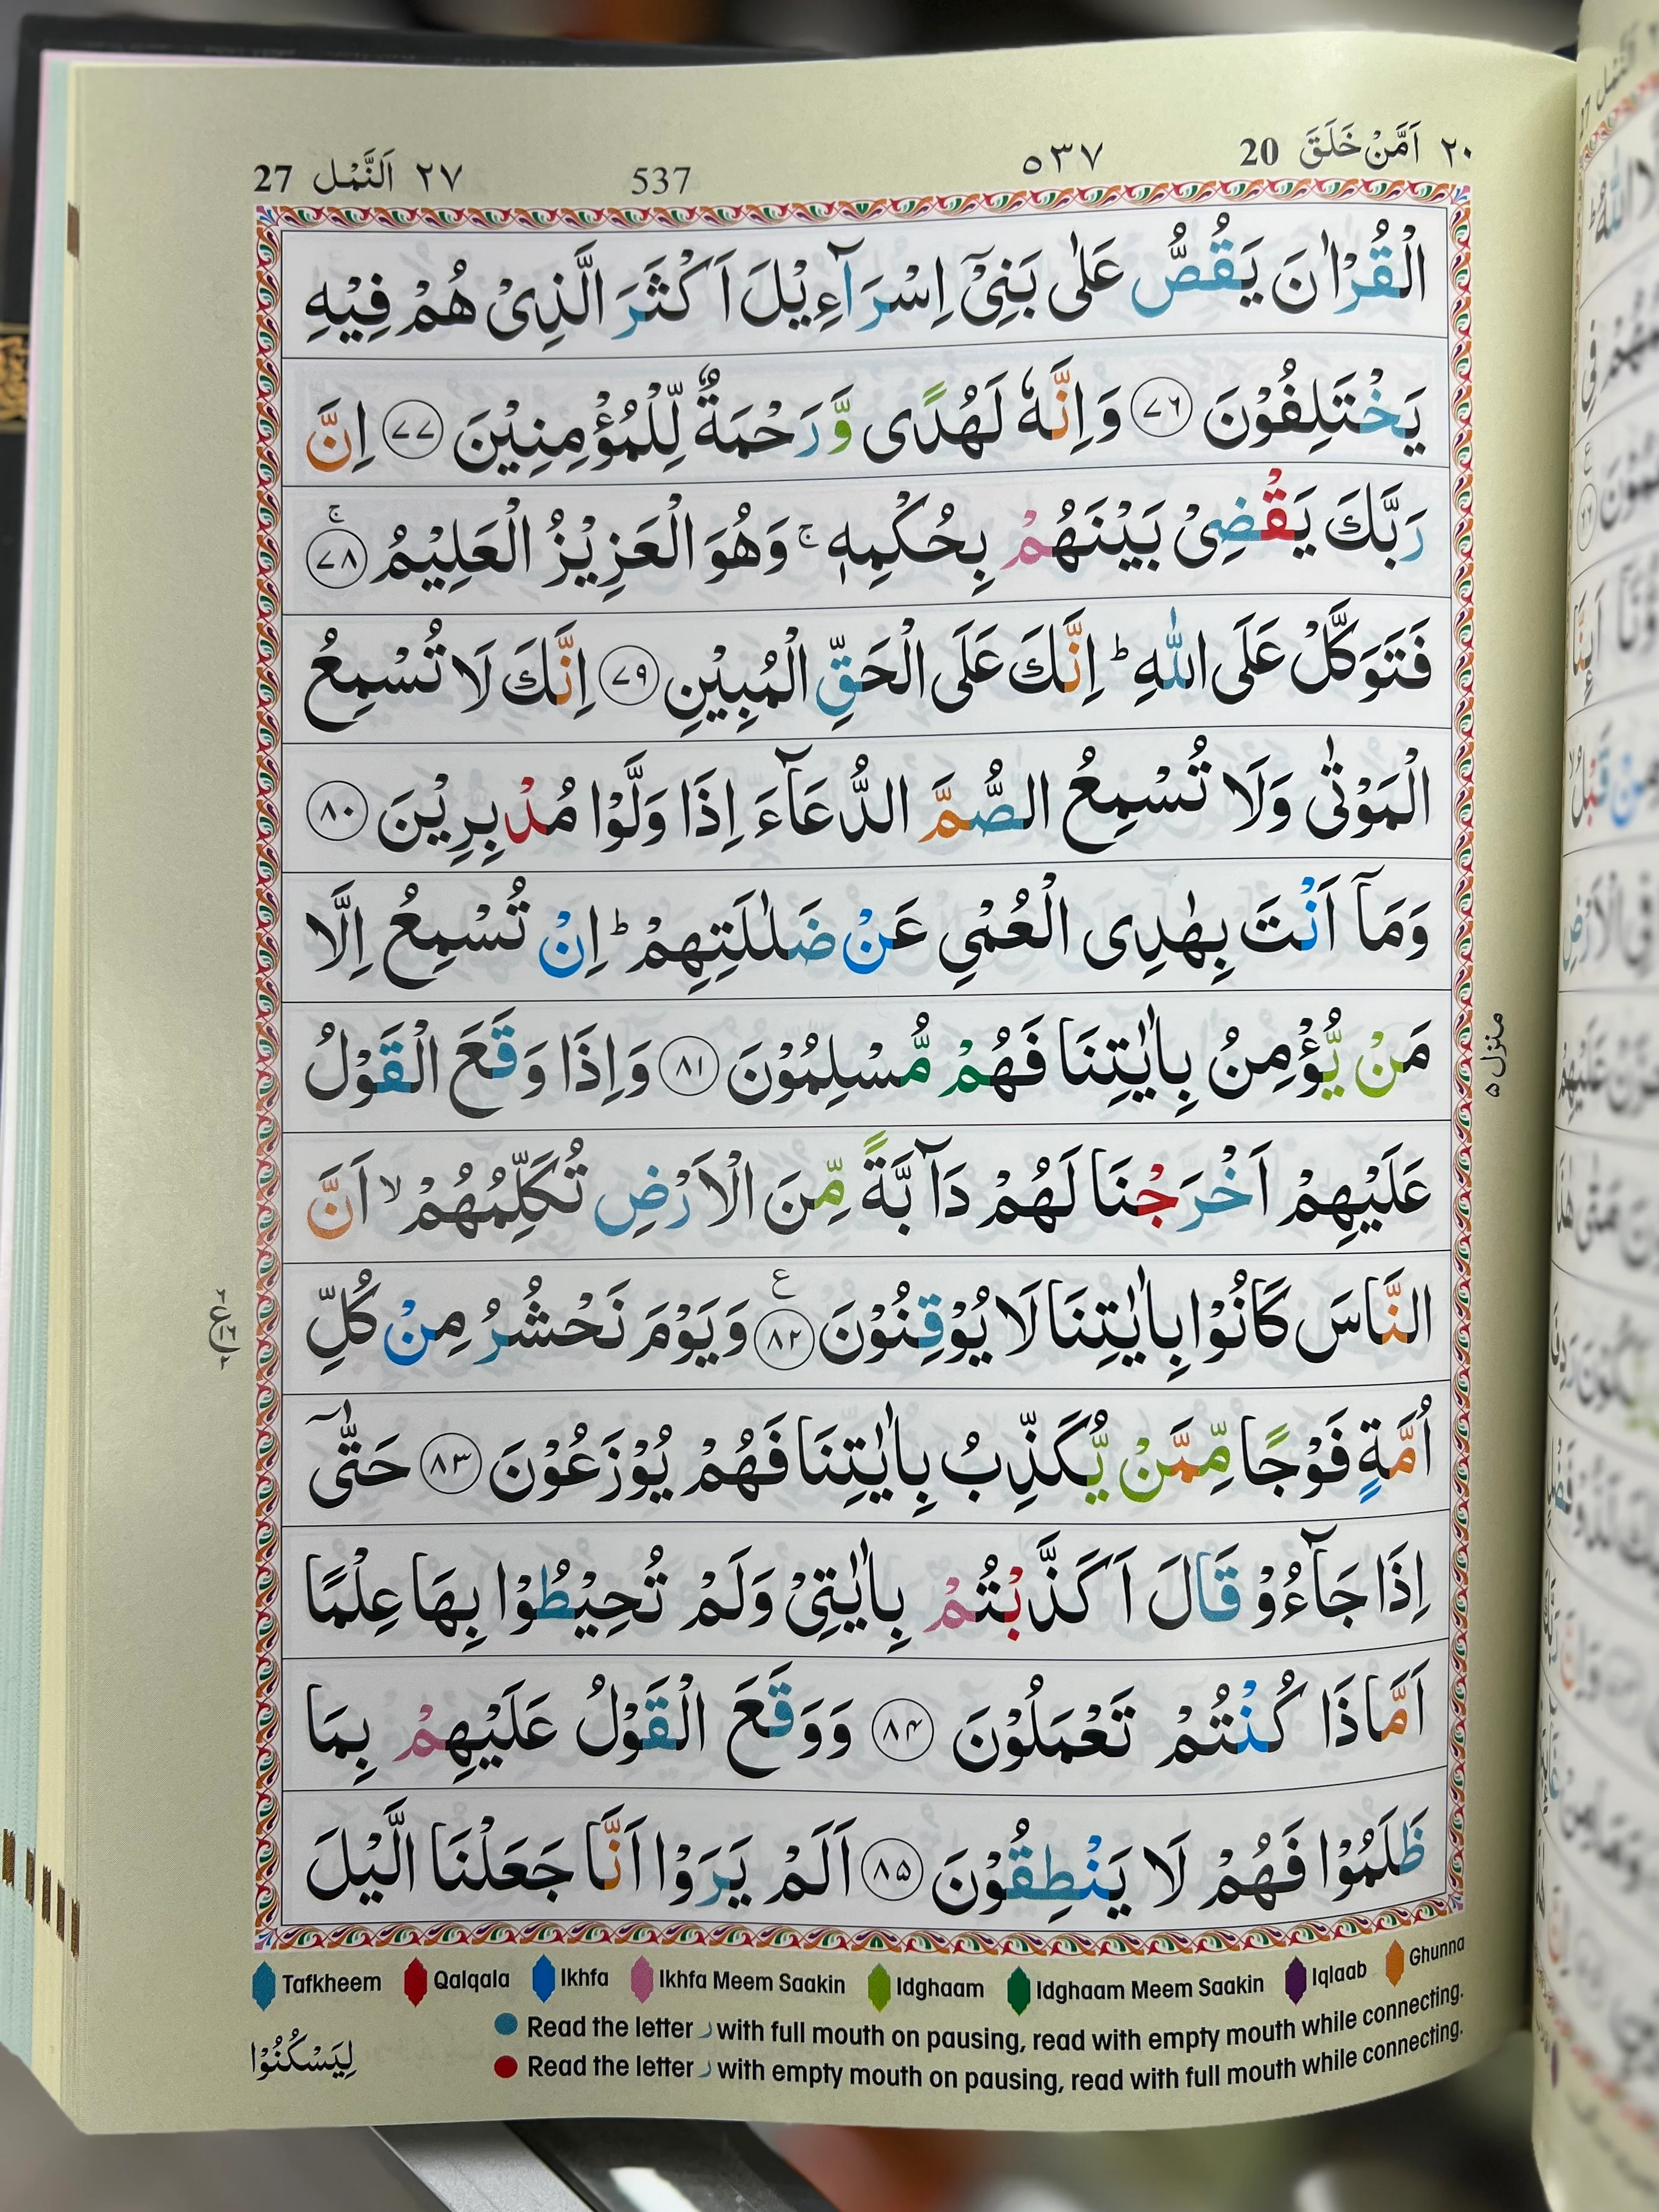 ٢٠ اَمَّنْ خَلَقَ 20 ٥٣٧ 537 ٢٧ اَلنَّمْل 27
الْقُرْاٰنَ يَقُصُّ عَلٰى بَنِىْٓ اِسْرَآءِيْلَ اَكْثَرَ الَّذِىْ هُمْ فِيْهِ
يَخْتَلِفُوْنَ ٧٦ وَاِنَّهٗ لَهُدًى وَّرَحْمَةٌ لِّلْمُؤْمِنِيْنَ ٧٧ اِنَّ
رَبَّكَ يَقْضِىْ بَيْنَهُمْ بِحُكْمِهٖ ۚ وَهُوَ الْعَزِيْزُ الْعَلِيْمُ ۚ ٧٨
فَتَوَكَّلْ عَلَى اللّٰهِ ؕ اِنَّكَ عَلَى الْحَقِّ الْمُبِيْنِ ٧٩ اِنَّكَ لَا تُسْمِعُ
الْمَوْتٰى وَلَا تُسْمِعُ الصُّمَّ الدُّعَآءَ اِذَا وَلَّوْا مُدْبِرِيْنَ ٨٠
وَمَآ اَنْتَ بِهٰدِى الْعُمْىِ عَنْ ضَلٰلَتِهِمْ ؕ اِنْ تُسْمِعُ اِلَّا
مَنْ يُّؤْمِنُ بِاٰيٰتِنَا فَهُمْ مُّسْلِمُوْنَ ٨١ وَاِذَا وَقَعَ الْقَوْلُ
عَلَيْهِمْ اَخْرَجْنَا لَهُمْ دَآبَّةً مِّنَ الْاَرْضِ تُكَلِّمُهُمْ ۙ اَنَّ
النَّاسَ كَانُوْا بِاٰيٰتِنَا لَا يُوْقِنُوْنَ ٨٢ ع وَيَوْمَ نَحْشُرُ مِنْ كُلِّ
اُمَّةٍ فَوْجًا مِّمَّنْ يُّكَذِّبُ بِاٰيٰتِنَا فَهُمْ يُوْزَعُوْنَ ٨٣ حَتّٰٓى
اِذَا جَآءُوْ قَالَ اَكَذَّبْتُمْ بِاٰيٰتِىْ وَلَمْ تُحِيْطُوْا بِهَا عِلْمًا
اَمَّاذَا كُنْتُمْ تَعْمَلُوْنَ ٨٤ وَوَقَعَ الْقَوْلُ عَلَيْهِمْ بِمَا
ظَلَمُوْا فَهُمْ لَا يَنْطِقُوْنَ ٨٥ اَلَمْ يَرَوْا اَنَّا جَعَلْنَا الَّيْلَ
منزل ٥
Tafkheem Qalqala Ikhfa Ikhfa Meem Saakin Idghaam Idghaam Meem Saakin Iqlaab Ghunna
Read the letter ر with full mouth on pausing, read with empty mouth while connecting.
Read the letter ر with empty mouth on pausing, read with full mouth while connecting.
لِيَسْكُنُوْا